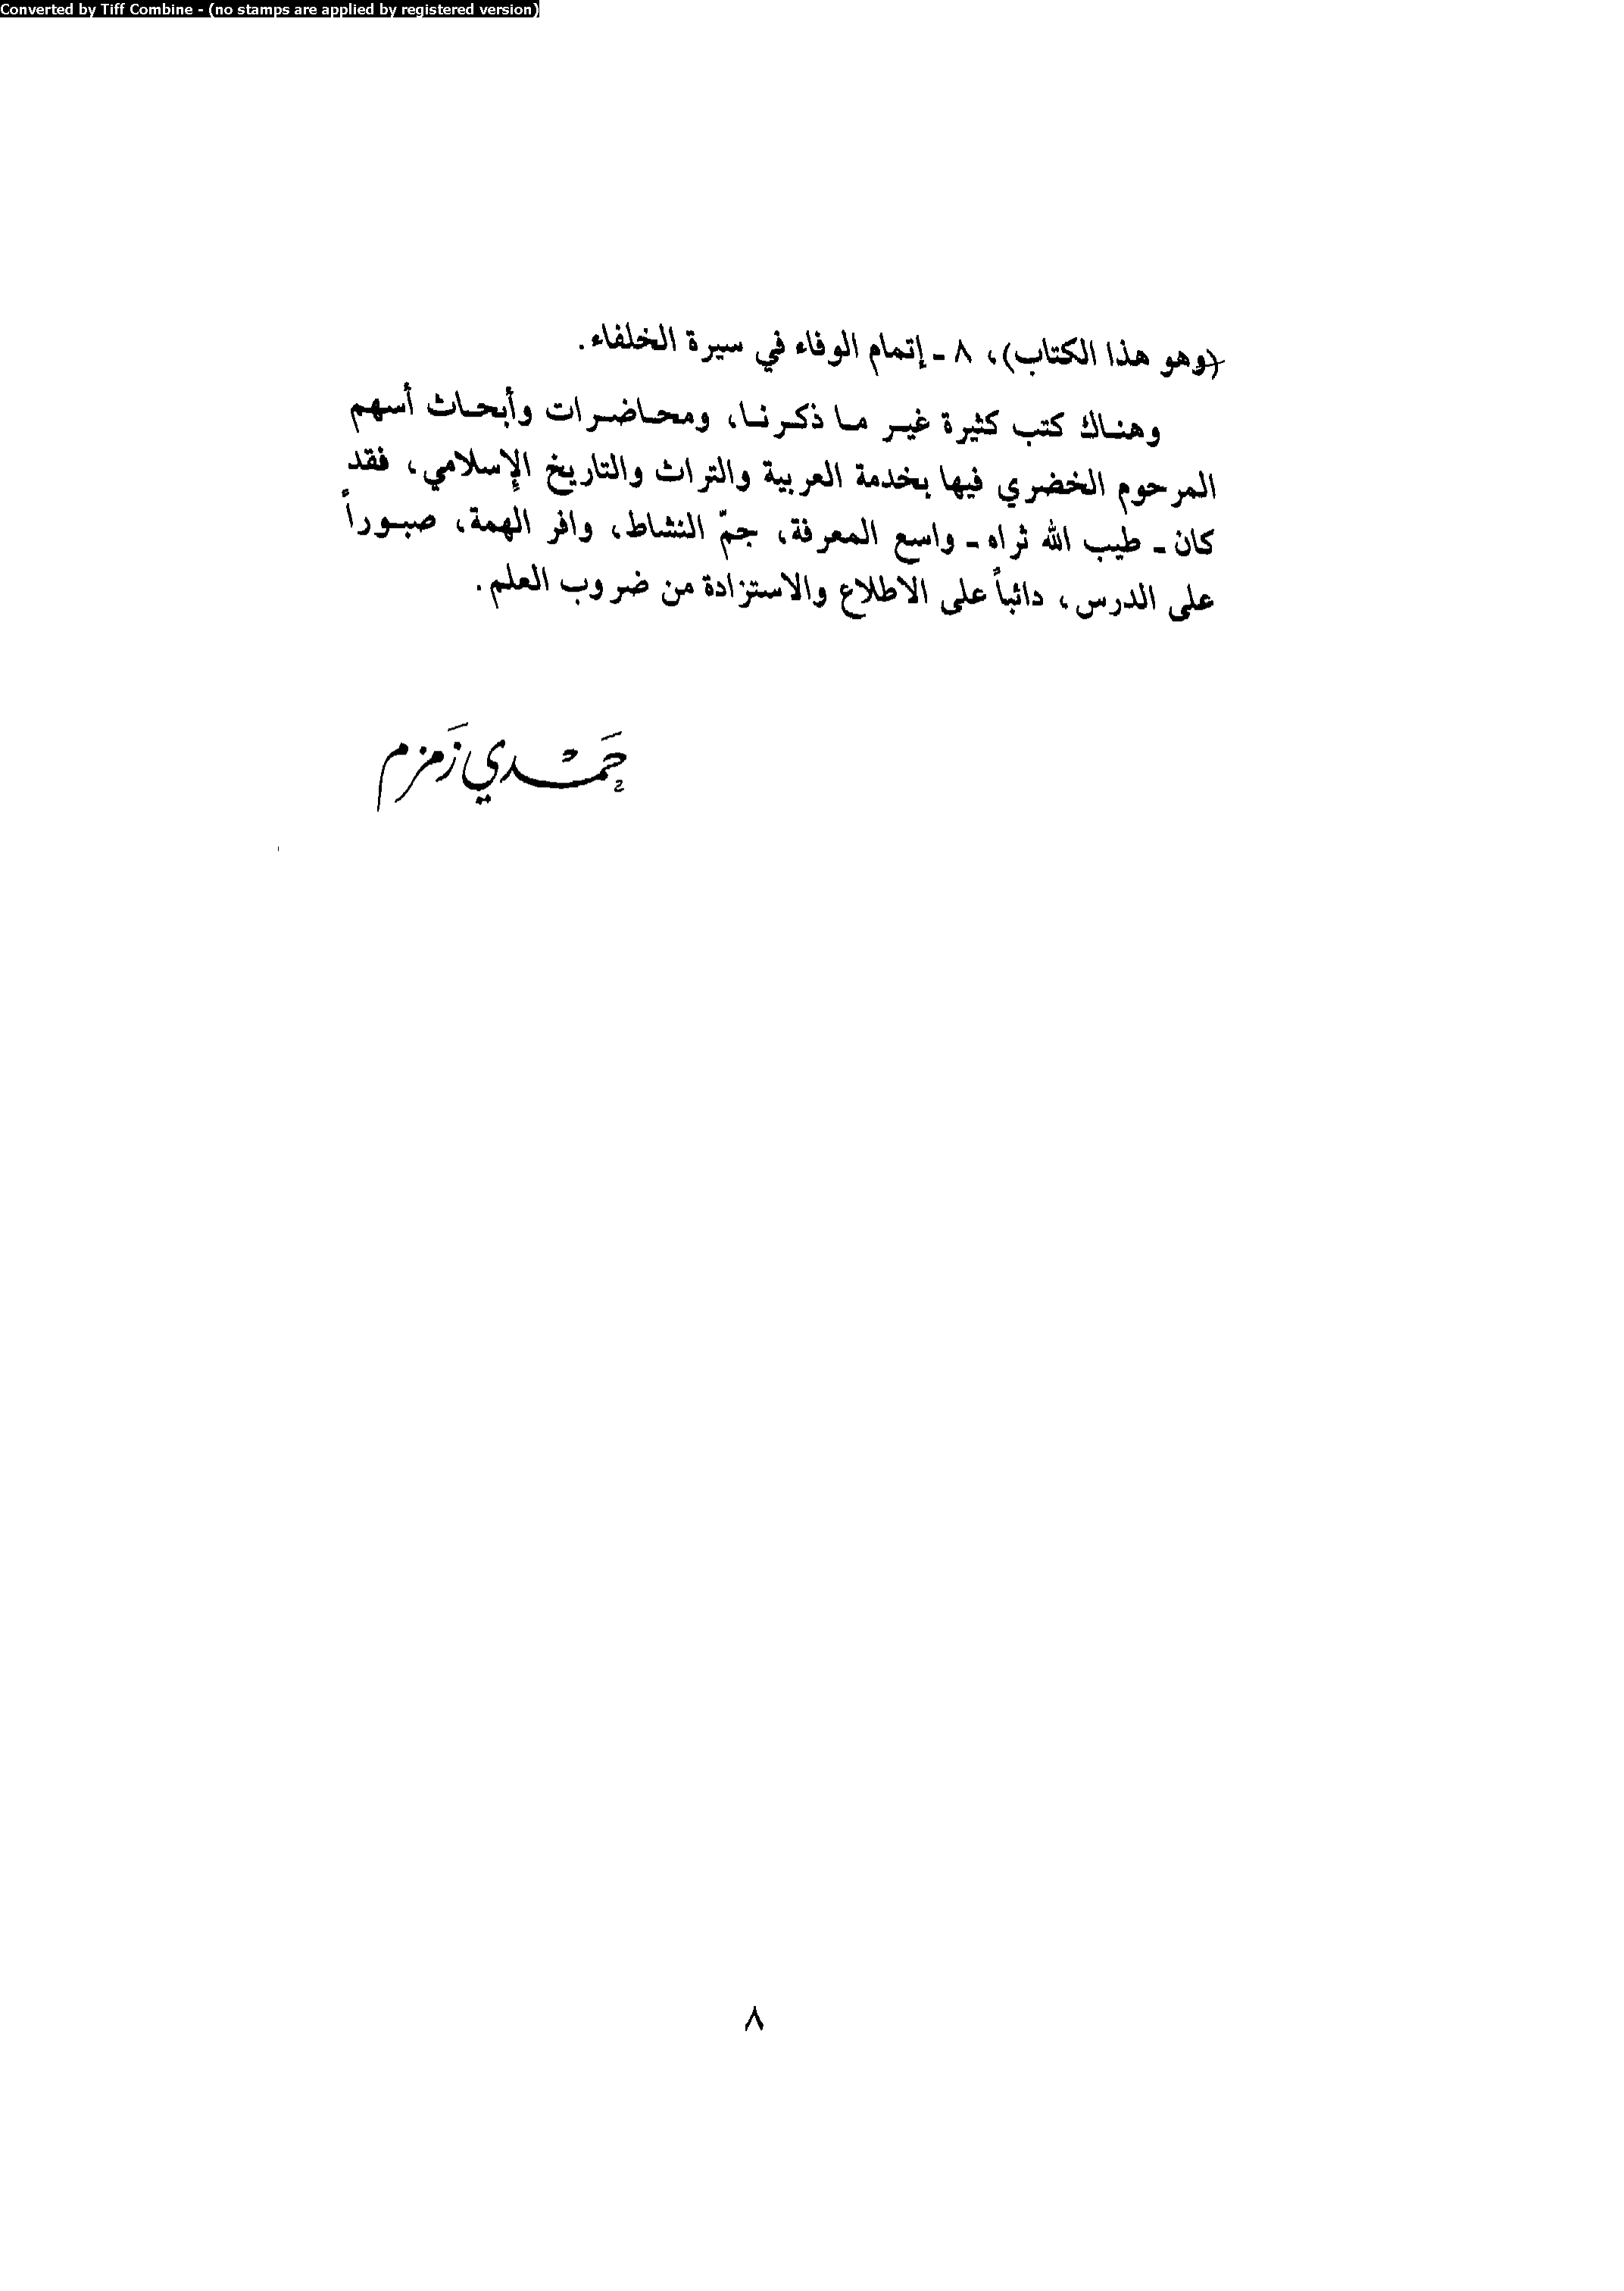 Converted by Tiff Combine - (no stamps are applied by registered version)
(وهو هذا الكتاب)، ٨ - إتمام الوفاء في سيرة الخلفاء.
وهناك كتب كثيرة غير ما ذكرنا، ومحاضرات وأبحاث أسهم
المرحوم الخضري فيها بخدمة العربية والتراث والتاريخ الإسلامي، فقد
كان - طيب الله ثراه - واسع المعرفة، جمّ النشاط، وافر الهمة، صبوراً
على الدرس، دائباً على الاطلاع والاستزادة من ضروب العلم.
حَمْدي زَمزم
٨